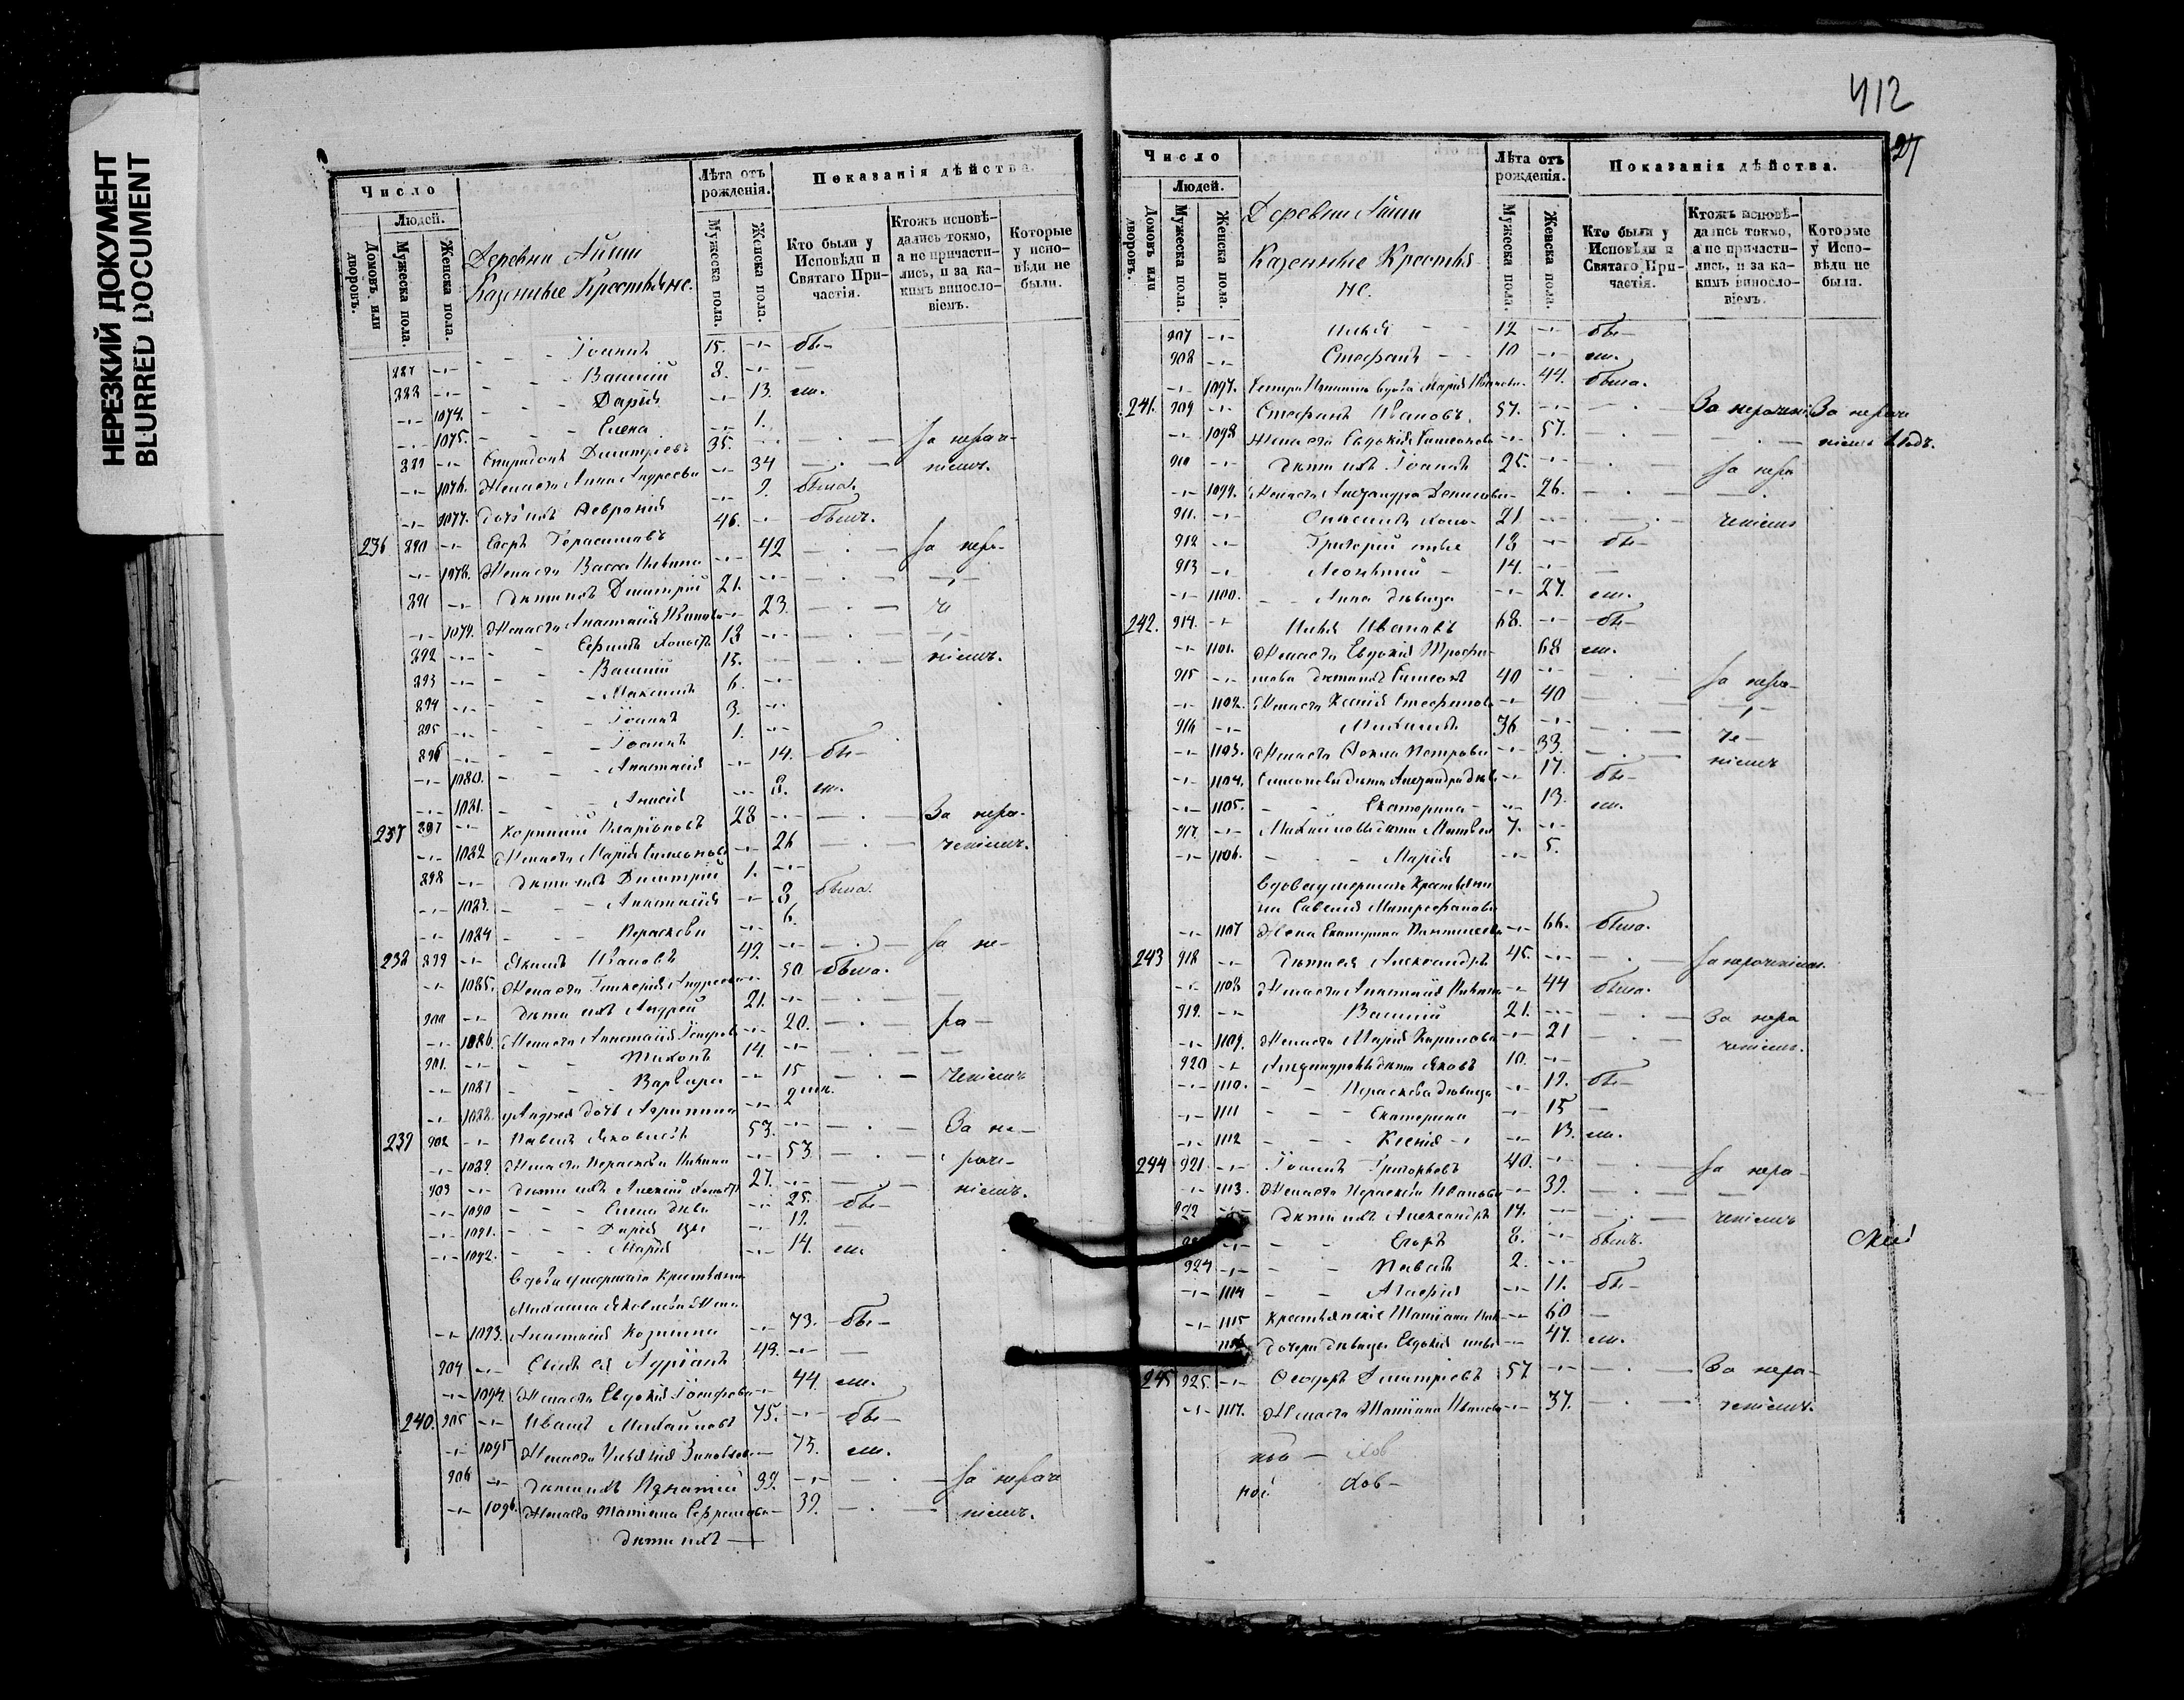 НЕРЕЗКИЙ ДОКУМЕНТ
BLURRED DOCUMENT
Число
Людей.
Домовъ или дворовъ.
Мужеска пола.
Женска пола.
Деревни Айши
Казенные Крестьяне.
Лѣта отъ рожденія.
Мужеска пола.
Женска пола.
Показанія дѣйства.
Кто были у Исповѣди и Святаго Причастія.
Ктожъ исповѣ-
дались токмо,
а не причасти-
лись, и за ка-
кимъ виносло-
віемъ.
Которые
у испо-
вѣди не
были.
887 Іоаннъ 15. бы-
888 Василій 8. —
1074. Дарія 13. ли.
1075. Елена 1.
889 Спиридонъ Димитріевъ 35. За нераче-
1076. Жена его Анна Андреева 34 ніемъ.
1077. Дочь ихъ Февронія 9. была.
236 890 Егоръ Герасимовъ 46. былъ.
1078. Жена его Васса Никитина 42 за нера-
891 Дѣти ихъ Димитрій 21.
1079. Жена его Анастасія Иванова 23. че
892 Сергій холостъ 18
893 Василій 15. ніемъ.
894 Максимъ 6.
895 Іоаннъ 3.
896 Іоаннъ 1.
1080. Анастасія 14. бы-
1081. Анисія 8. ли.
237 897 Корнилій Иларіоновъ 28 За нера-
1082 Жена его Марія Симеонова 26 ченіемъ.
898 Дѣти ихъ Димитрій 1.
1083. Анастасія 8 была.
1084 Параскева 6.
238 899 Якимъ Ивановъ 49. за не-
1085. Жена его Гликерія Андреева 50 была.
900 Дѣти ихъ Андрей 21.
1086. Жена его Анастасія Іосифова 20. ра-
901. Тихонъ 14.
1087 Варвара 15 ченіемъ
1088. у Андрея дочь Агрипина 2
239 902 Павелъ Яковлевъ 53. За не-
1089 Жена его Параскева Никитина 53. раче-
903 Дѣти ихъ Алексій холостъ 27. ніемъ.
1090 Елена дѣви 25. бы-
1091. Дарія цы 19. —
1092. Марія 14. ли
Вдова умершаго крестьянина
Михаила Яковлева жена
1093. Анастасія Козмина 73. бы-
904 Сынъ ея Адріанъ 49. —
1094. Жена его Евдокія Іосифова 44 ли.
240. 905 Иванъ Михайловъ 75. бы-
1095 Жена его Ульянія Зиновьева 75. ли.
906 Дѣти ихъ Игнатій 39. за нераче
1096. Жена его Татіана Сергеева 39. ніемъ.
Дѣти ихъ —
412
27
Число
Людей.
Домовъ или дворовъ.
Мужеска пола.
Женска пола.
Деревни Айши
Казенные Крестья-
не.
Лѣта отъ рожденія.
Мужеска пола.
Женска пола.
Показанія дѣйства.
Кто были у Исповѣди и Святаго При-
частія.
Ктожъ исповѣ-
дались токмо,
а не причасти-
лись, и за ка-
кимъ винословіемъ.
Которые
у Испо-
вѣди не
были.
907 Илія 12 бы-
908 Стефанъ 10 ли.
1097. вдова Марія Иванова 44. была.
241. 909 Стефанъ Ивановъ 57. За нерачені За нераче
1098 Жена его Евдокія Симеонова 57. ніемъ
910 Дѣти ихъ Іоаннъ 25. за нера
1099. Жена его Александра Денисова 26.
911. холо- 21 ченіемъ
912 Григорій стые 18 бы-
913 Леонтій 14. —
1100. Анна дѣвица 27. ли.
242. 914. Илія Ивановъ 68. бы-
1101. Жена его Евдокія Трофи- 68 ли.
915 мова Дѣти ихъ Симеонъ 40 за нера-
1102. Жена его Ксенія Стефанова 40
916 Михаилъ 36 че-
1103. Жена его Фекла Петрова 33. ніемъ
1104. Симеоновы дѣти Александра дѣв 17. бы-
1105. Екатерина 13. ли.
917. Михайловы дѣти Матвей 7.
1106. Марія 5.
Вдова умершаго крестьяни
на Савелія Митрофанова
1107 Жена Екатерина 66. была.
243 918 Дѣти ея Александръ 45. за нераченіемъ.
1108 Жена его Анастасія Никитина 44 была.
919. Василій 21. За нера
1109. Жена его Марія Карпова 21 ченіемъ.
920 Александровы дѣти Яковъ 10.
1110. Параскева дѣвица 19. бы-
1111 Екатерина 15 —
1112 Ксенія 13. ли.
244 921. Іоаннъ Григорьевъ 40. за нера-
1113. Жена его Параскева Иванова 39.
922 Дѣти ихъ Александръ 14. ченіемъ
Егоръ 8. былъ.
924 Павелъ 2.
1114 Агафія 11. бы-
1115 Крестьянскіе Татіана 60 —
1116 дочери дѣвицы Евдокія 47. ли.
245 925. Феодоръ Димитріевъ 57 За нера-
1117. Жена его Татіана Иванова 37. ченіемъ.